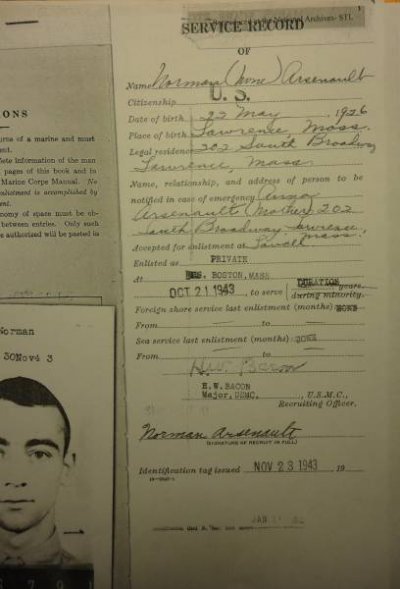 IONS
urse of a marine and must
ent.
lete information of the man
pages of this book and in
Marine Corps Manual. No
enlistment is accomplished by
ent.
nomy of space must be ob-
between entries. Only such
e authorized will be pasted in
Norman
30Nov4 3
National Archives- STL
SERVICE RECORD
OF
Name Norman (none) Arsenault
Citizenship U. S.
Date of birth 22 May, 1926
Place of birth Lawrence, Mass.
Legal residence 202 South Broadway
Lawrence, Mass.
Name, relationship, and address of person to be
notified in case of emergency
Arsenault (Mother) 202
South Broadway Lawrence,
Mass.
Accepted for enlistment at Lowell
Enlisted as PRIVATE
At BOSTON, MASS
OCT 21 1943, to serve DURATION years.
during minority.
Foreign shore service last enlistment (months) NONE
From to
Sea service last enlistment (months) NONE
From to
H.W. Bacon
H.W. BACON
Major, USMC. , U.S.M.C.,
Recruiting Officer.
Norman Arsenault
(SIGNATURE OF RECRUIT IN FULL)
Identification tag issued NOV 23 1943, 19